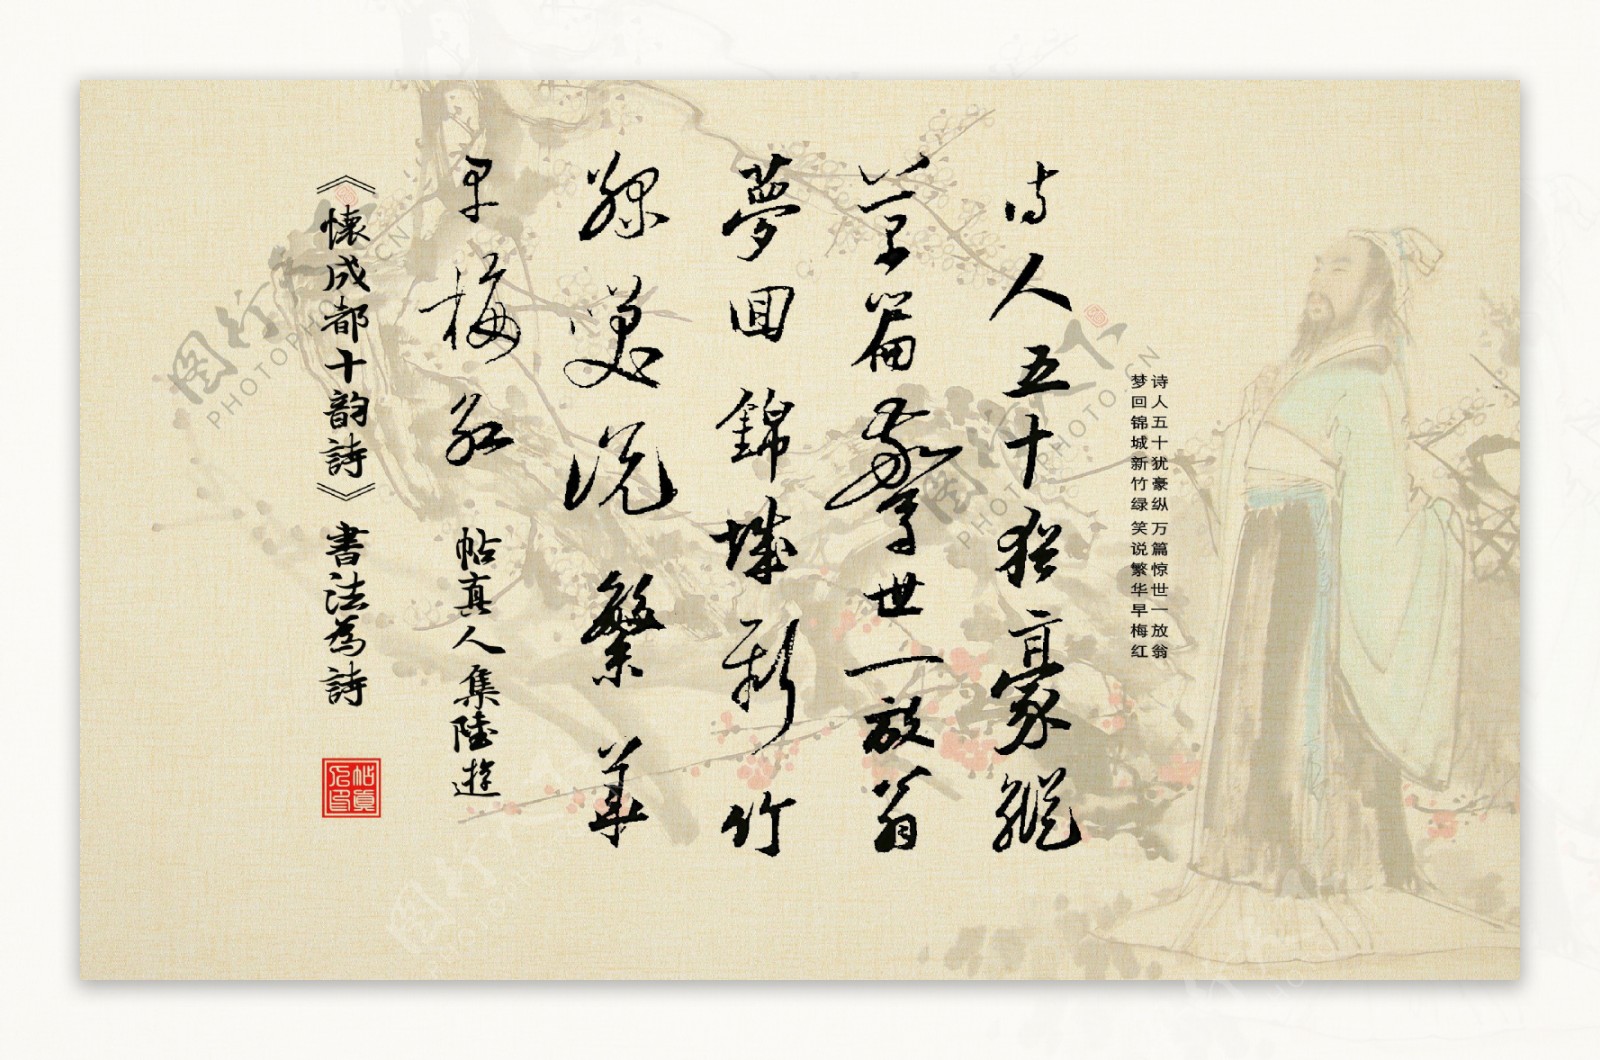 诗人五十犹豪纵 万篇惊世一放翁
梦回锦城新竹绿 笑说繁华早梅红
诗人五十猶豪縱
萬篇驚世一放翁
夢回錦城新竹
綠笑说繁華
早梅红 帖真人集陸遊
《懷成都十韵詩》書法為詩
帖真人印
PHOTOPHOTO.CN